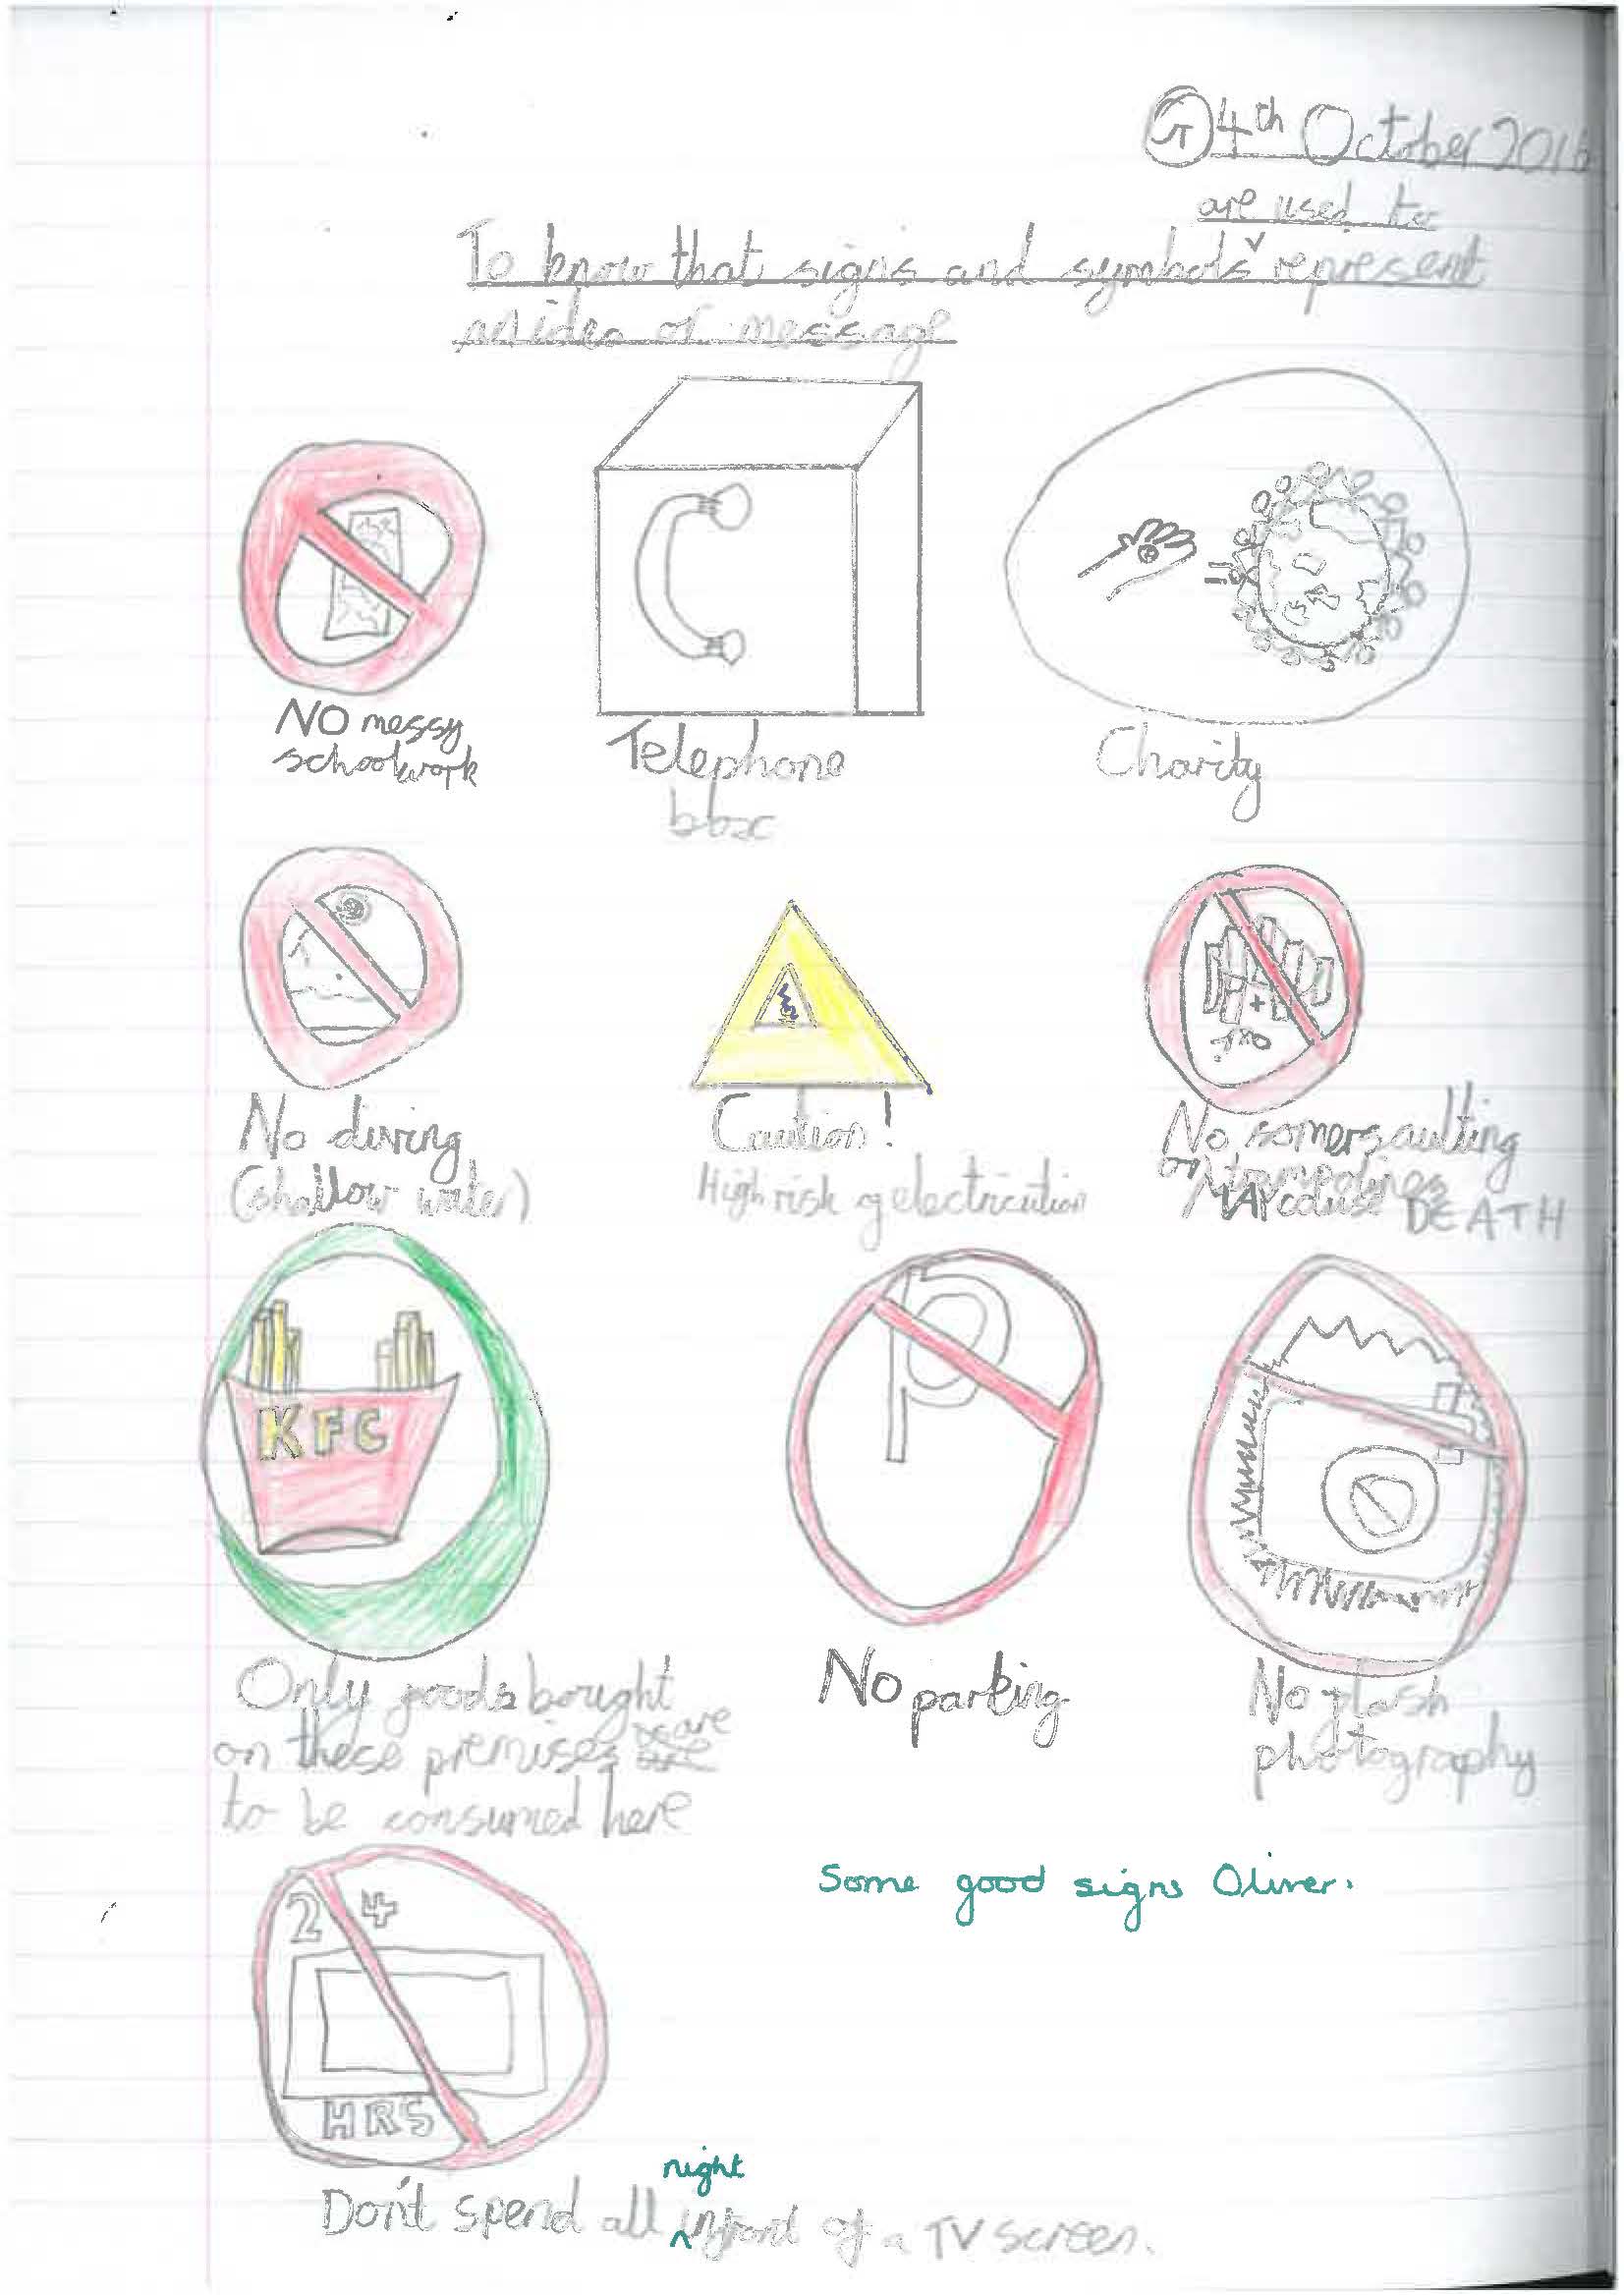 GT 4th October 2016
are used to
To know that signs and symbols ᵛ represent
an idea or message
NO messy
schoolwork
Telephone
box
Charity
No diving
(shallow water)
Caution!
High risk of electricution
No somersaulting
on trampolines
MAY cause DEATH
KFC
P
Only goods bought
on these premises are
to be consumed here
No parking
No flash
photography
Some good signs Oliver.
24
HRS
night
Don't spend all ^ infront of a TV screen.